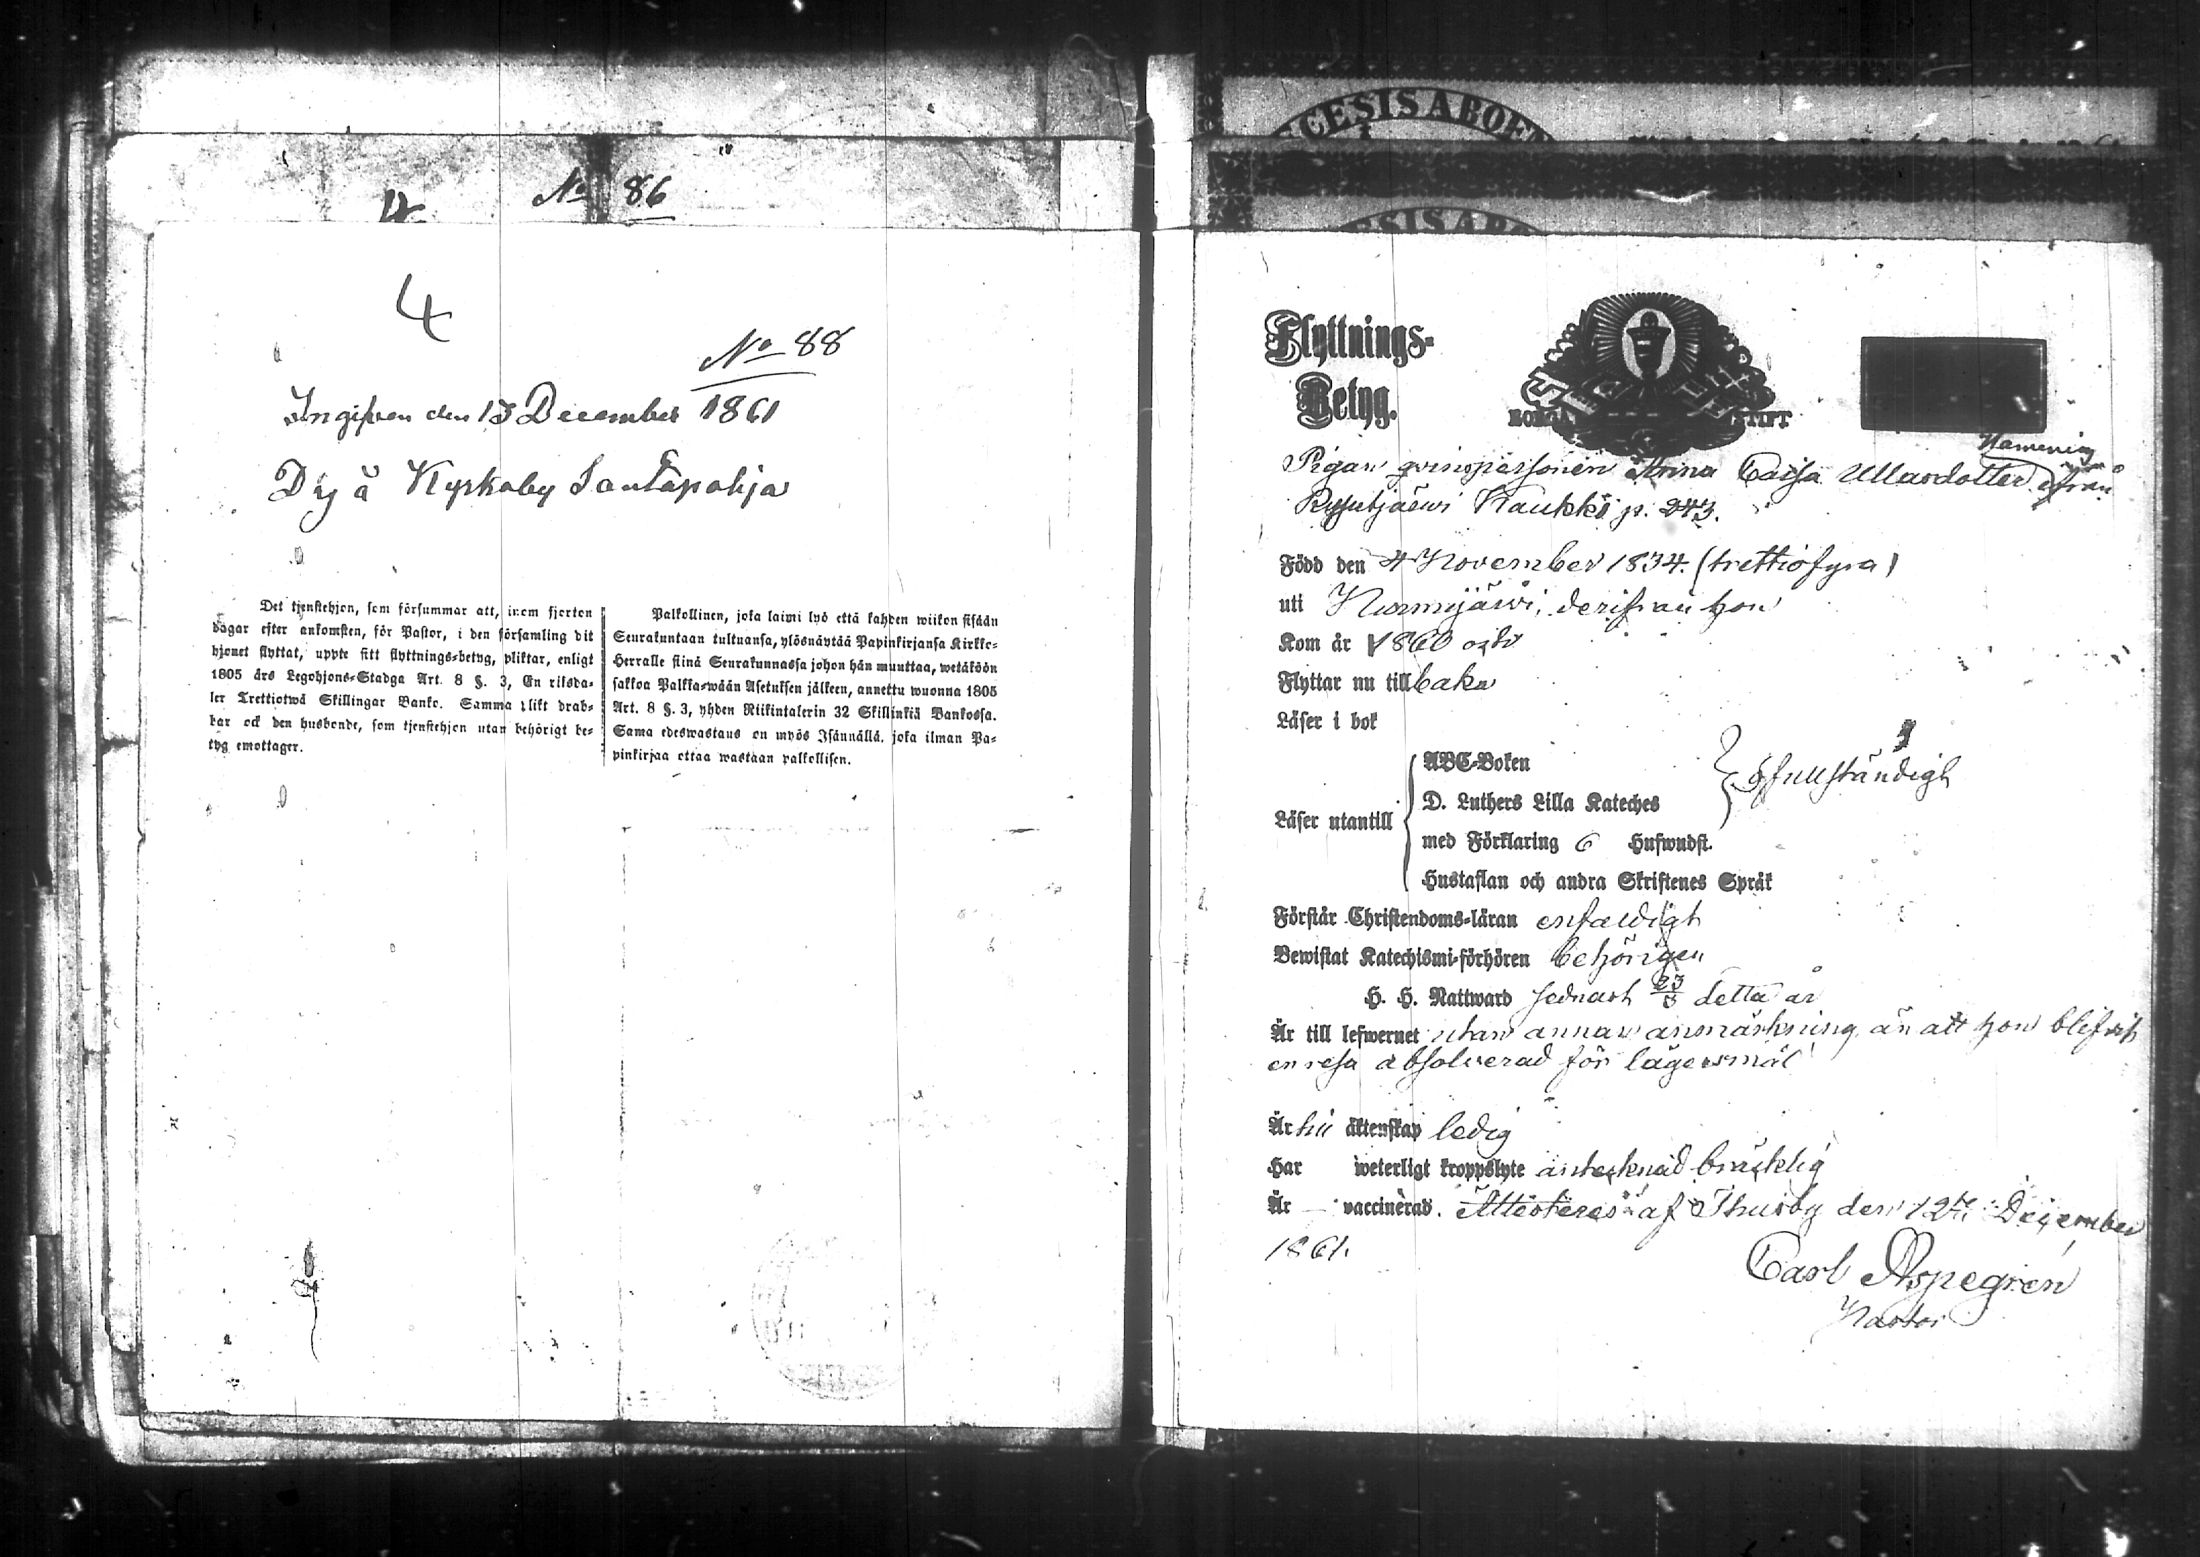 No 86
4
No 88
Ingifven den 13 December 1861
D by å Kyrkoby Santapohja
Det tjenstehjon, som försummar att, inom fjorton
dagar efter ankomsten, för Pastor, i den församling dit
hjonet flyttat, uppte sitt flyttnings-betyg, pliktar, enligt
1805 års Legohjons-Stadga Art. 8 §. 3, En riksda-
ler Trettiotwå Skillingar Banko. Samma plikt drab-
bar ock den husbonde, som tjenstehjon utan behörigt be-
tyg emottager.
Palkollinen, joka laiwi lyö että kahden wiikon sisään
Seurakuntaan tultuansa, ylösnäyttää Papinkirjansa Kirkko-
Herralle siinä Seurakunnassa johon hän muuttaa, wetäköön
sakkoa Palkka-wään Asetuksen jälkeen, annettu wuonna 1805
Art. 8 §. 3, yhden Riikintalerin 32 Skillinkiä Bankossa.
Sama edeswastaus on myös Isännällä, joka ilman Pa-
pinkirjaa ottaa wastaan palkollisen.
CESIS ABOEN
ESIS ABO
Flyttnings-
Betyg.
BORGÅ STIFT
Pigan qvinspersonen Anna Caisa Ullasdotter ifrån
Kaukki p. 243.
Född den 4 November 1834. (trettiofyra)
uti Nurmijärvi, derifrån hon
Kom år 1860 och
Flyttar nu tillbaka
Läser i bok
Läser utantill
ABC-Boken
D. Luthers Lilla Kateches
med Förklaring 6 Hufwudst.
Hustaflan och andra Skriftenes Språk
ofullständigt
Förstår Christendoms-läran enfaldigt
Bewistat Katechismi-förhören behörigen
H. H. Nattward sednast 23/3 detta år
Är till lefwernet utan annan anmärkning, än att hon blifvit
en resa absolverad för lägersmål
Är till äktenskap ledig
Har weterligt kroppslyte antecknad bräcklig
Är — vaccinerad. Attesteras af Thusby den 12te December
1861.
Carl Aspegren
Pastor